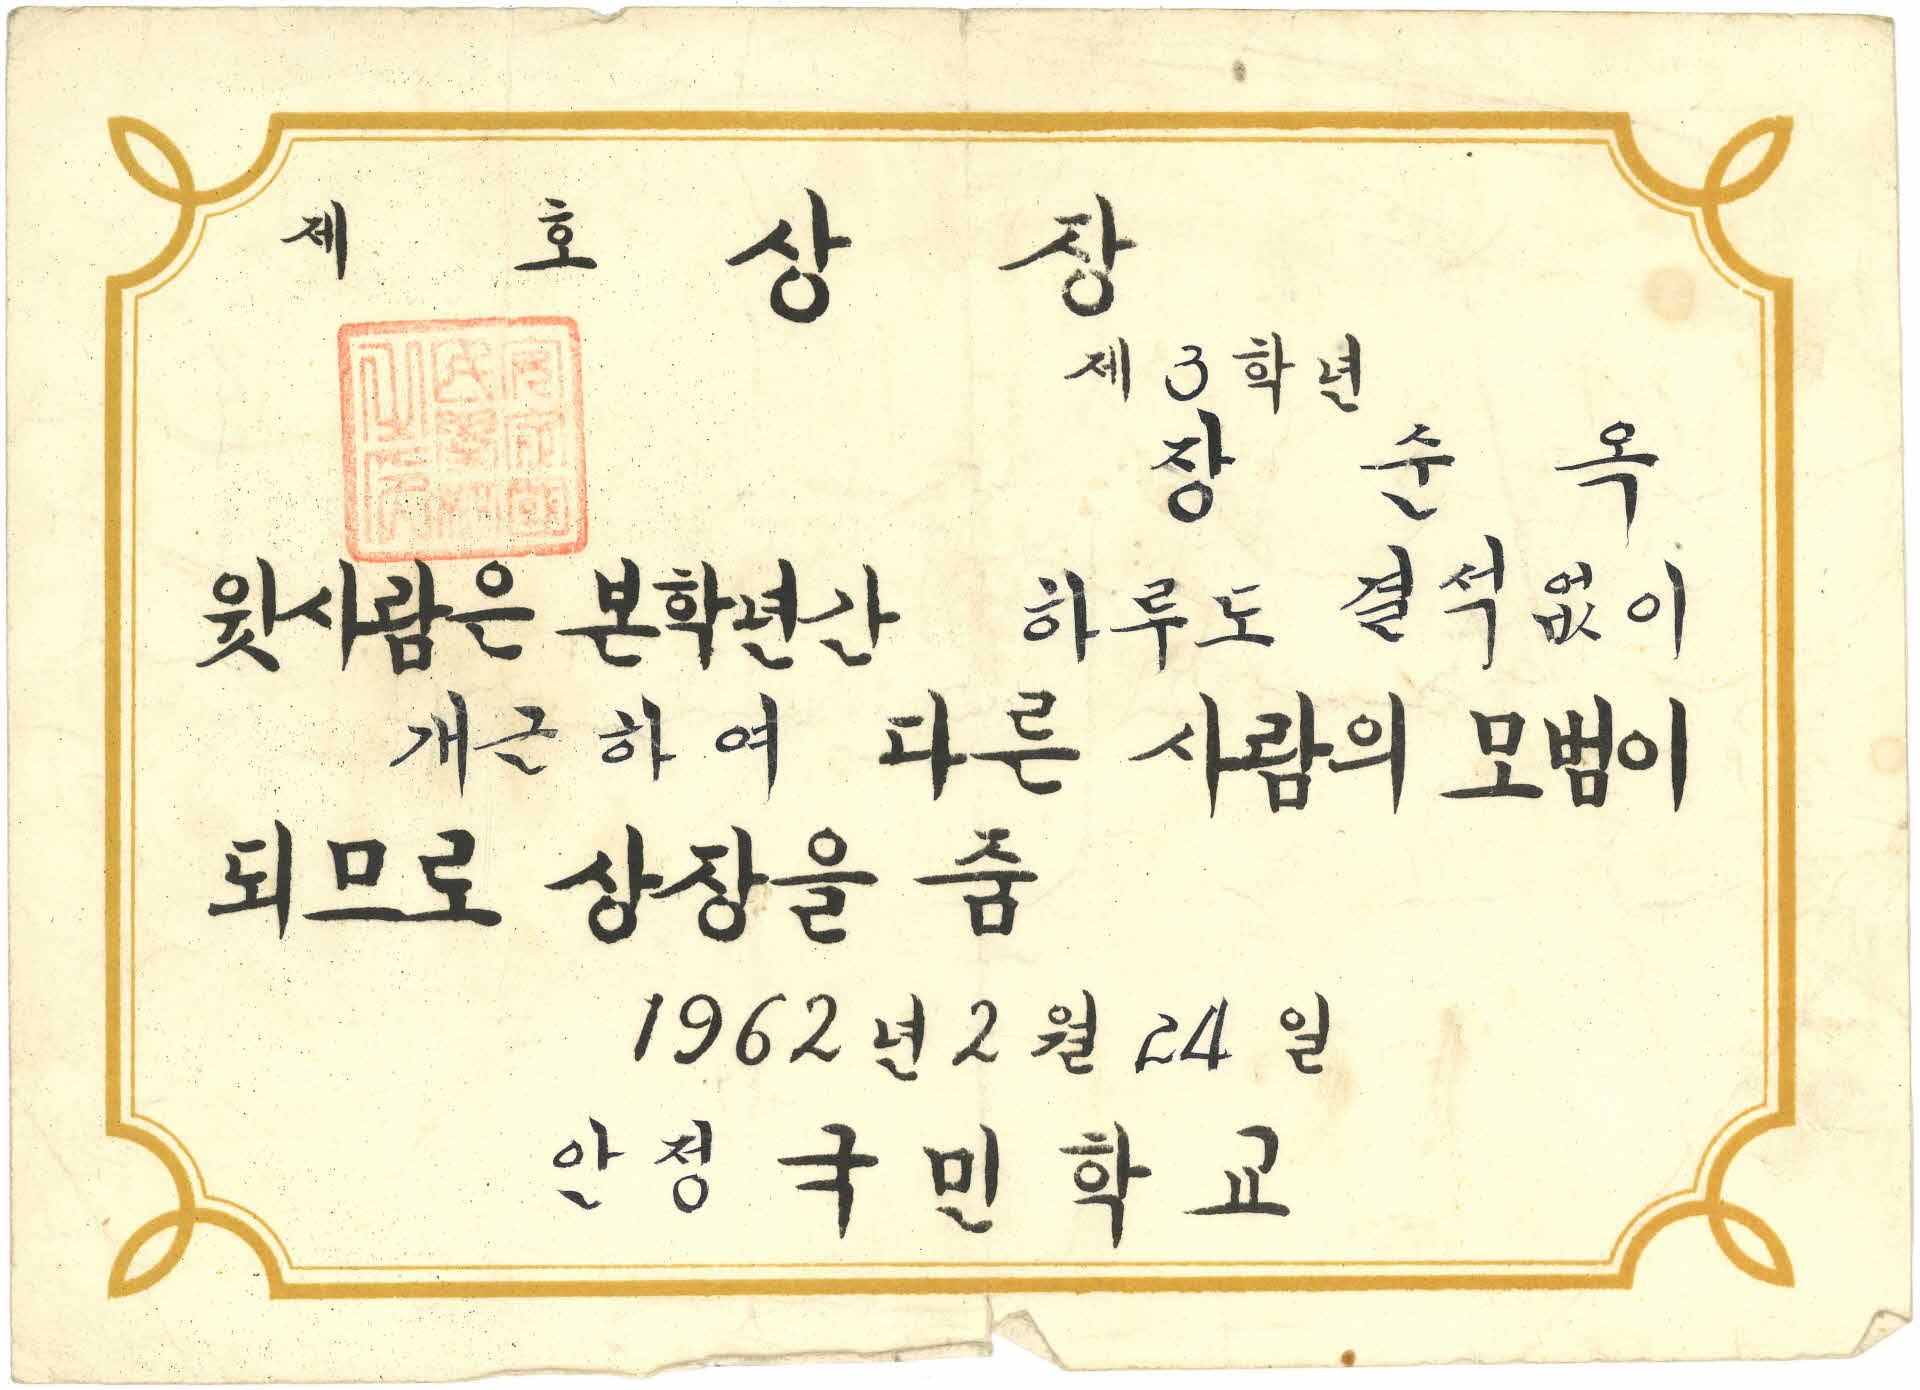 제 호 상 장
제 3 학 년
장 준 옥
윗사람은 본학년간 하루도 결석없이
개근하여 다른 사람의 모범이
되므로 상장을 줌
1962년 2월 24일
안정국민학교